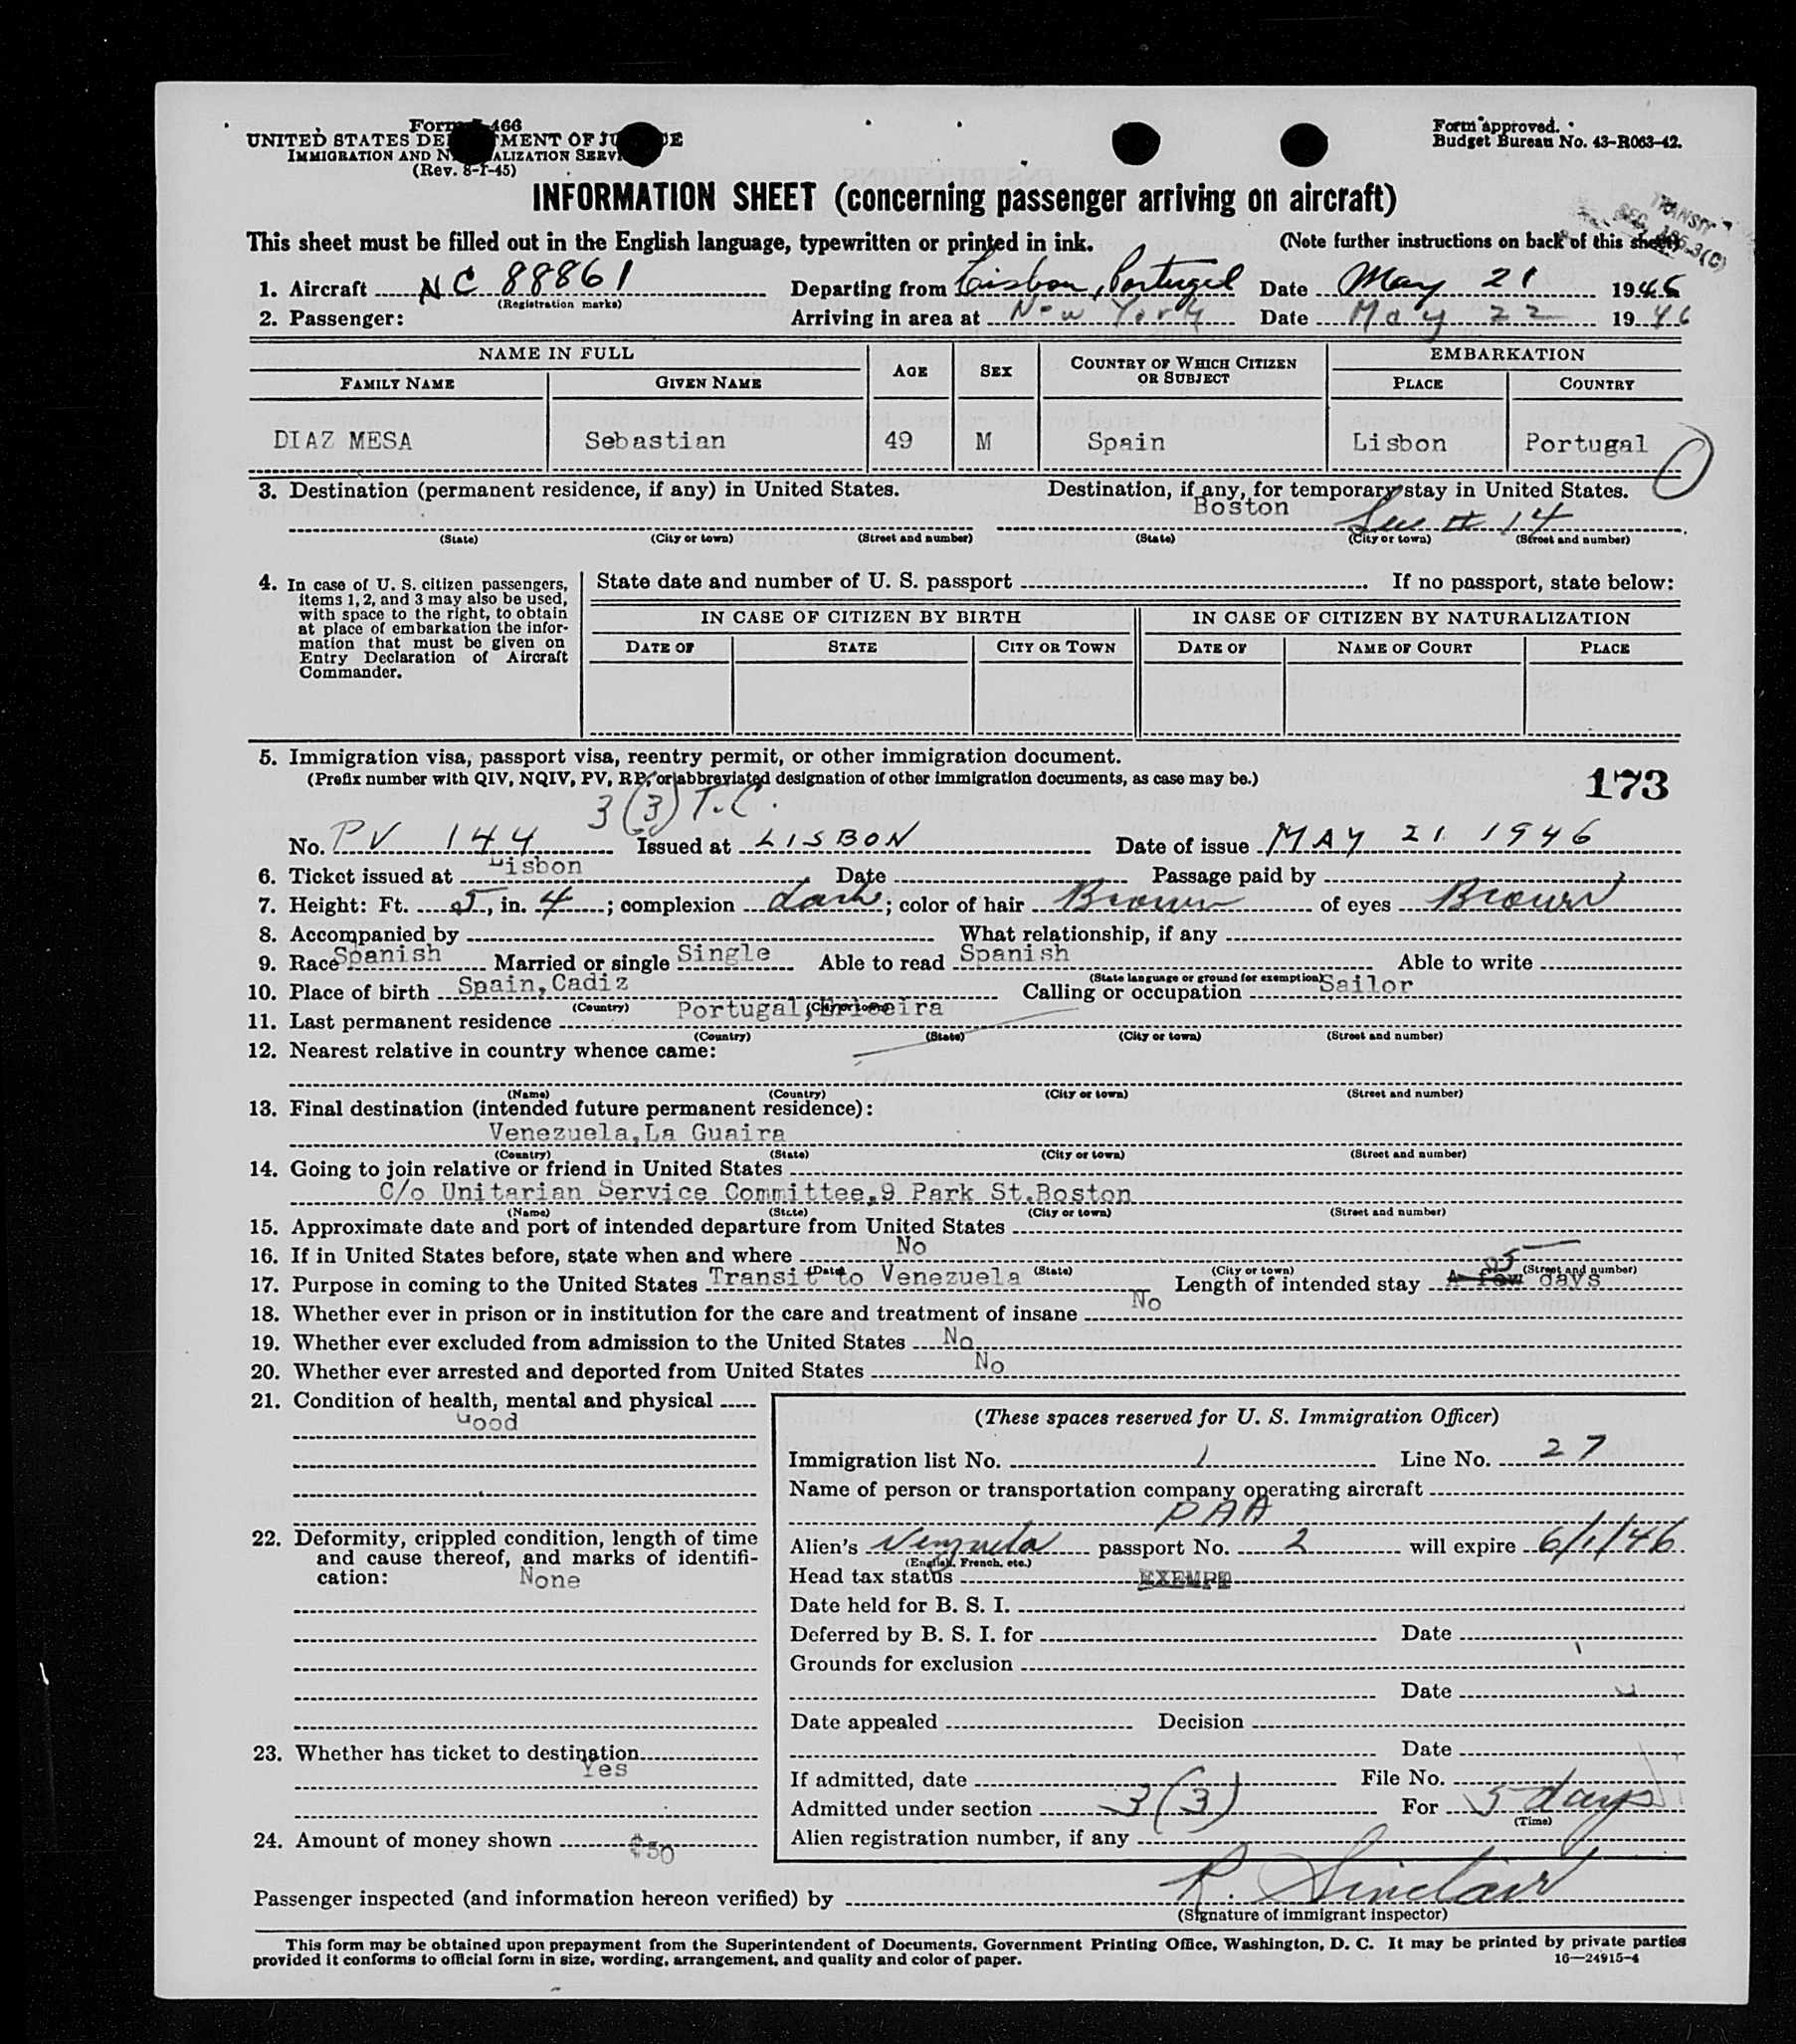 Form I-466
UNITED STATES DEPARTMENT OF JUSTICE
IMMIGRATION AND NATURALIZATION SERVICE
(Rev. 8-1-45)
Form approved.
Budget Bureau No. 43-R063-42.
INFORMATION SHEET (concerning passenger arriving on aircraft)
TRANSIT
SEC. 3(C)
This sheet must be filled out in the English language, typewritten or printed in ink. (Note further instructions on back of this sheet)
1. Aircraft NC 88861 Departing from Lisbon, Portugal Date May 21 1946
(Registration marks)
2. Passenger: Arriving in area at New York Date May 22 1946
NAME IN FULL AGE SEX COUNTRY OF WHICH CITIZEN OR SUBJECT EMBARKATION
FAMILY NAME GIVEN NAME PLACE COUNTRY
DIAZ MESA Sebastian 49 M Spain Lisbon Portugal
3. Destination (permanent residence, if any) in United States. Destination, if any, for temporary stay in United States.
Boston See # 14
(State) (City or town) (Street and number) (State) (City or town) (Street and number)
4. In case of U. S. citizen passengers, items 1, 2, and 3 may also be used, with space to the right, to obtain at place of embarkation the information that must be given on Entry Declaration of Aircraft Commander.
State date and number of U. S. passport If no passport, state below:
IN CASE OF CITIZEN BY BIRTH IN CASE OF CITIZEN BY NATURALIZATION
DATE OF STATE CITY OR TOWN DATE OF NAME OF COURT PLACE
5. Immigration visa, passport visa, reentry permit, or other immigration document.
(Prefix number with QIV, NQIV, PV, RP, or abbreviated designation of other immigration documents, as case may be.)
173
3(3) T.C.
No. PV 144 Issued at LISBON Date of issue MAY 21 1946
6. Ticket issued at Lisbon Date Passage paid by
7. Height: Ft. 5, in. 4; complexion dark; color of hair Brown of eyes Brown
8. Accompanied by What relationship, if any
9. Race Spanish Married or single Single Able to read Spanish Able to write
(State language or ground for exemption)
10. Place of birth Spain, Cadiz Calling or occupation Sailor
(Country) (City or town)
11. Last permanent residence Portugal, Ericeira
(Country) (State) (City or town) (Street and number)
12. Nearest relative in country whence came:
(Name) (Country) (City or town) (Street and number)
13. Final destination (intended future permanent residence):
Venezuela, La Guaira
(Country) (State) (City or town) (Street and number)
14. Going to join relative or friend in United States
C/o Unitarian Service Committee, 9 Park St. Boston
(Name) (State) (City or town) (Street and number)
15. Approximate date and port of intended departure from United States
16. If in United States before, state when and where No
(Date) (State) (City or town) (Street and number)
17. Purpose in coming to the United States Transit to Venezuela Length of intended stay A few 5 days
18. Whether ever in prison or in institution for the care and treatment of insane No
19. Whether ever excluded from admission to the United States No
20. Whether ever arrested and deported from United States No
21. Condition of health, mental and physical
Good
22. Deformity, crippled condition, length of time and cause thereof, and marks of identification:
None
23. Whether has ticket to destination
Yes
24. Amount of money shown $50
(These spaces reserved for U. S. Immigration Officer)
Immigration list No. 1 Line No. 27
Name of person or transportation company operating aircraft
PAA
Alien's Venzuela passport No. 2 will expire 6/1/46
(English, French, etc.)
Head tax status EXEMPT
Date held for B. S. I.
Deferred by B. S. I. for Date
Grounds for exclusion
Date
Date appealed Decision
Date
If admitted, date File No.
Admitted under section 3(3) For 5 days
(Time)
Alien registration number, if any
Passenger inspected (and information hereon verified) by R. Sinclair
(Signature of immigrant inspector)
This form may be obtained upon prepayment from the Superintendent of Documents, Government Printing Office, Washington, D. C. It may be printed by private parties
provided it conforms to official form in size, wording, arrangement, and quality and color of paper. 16—24915-4